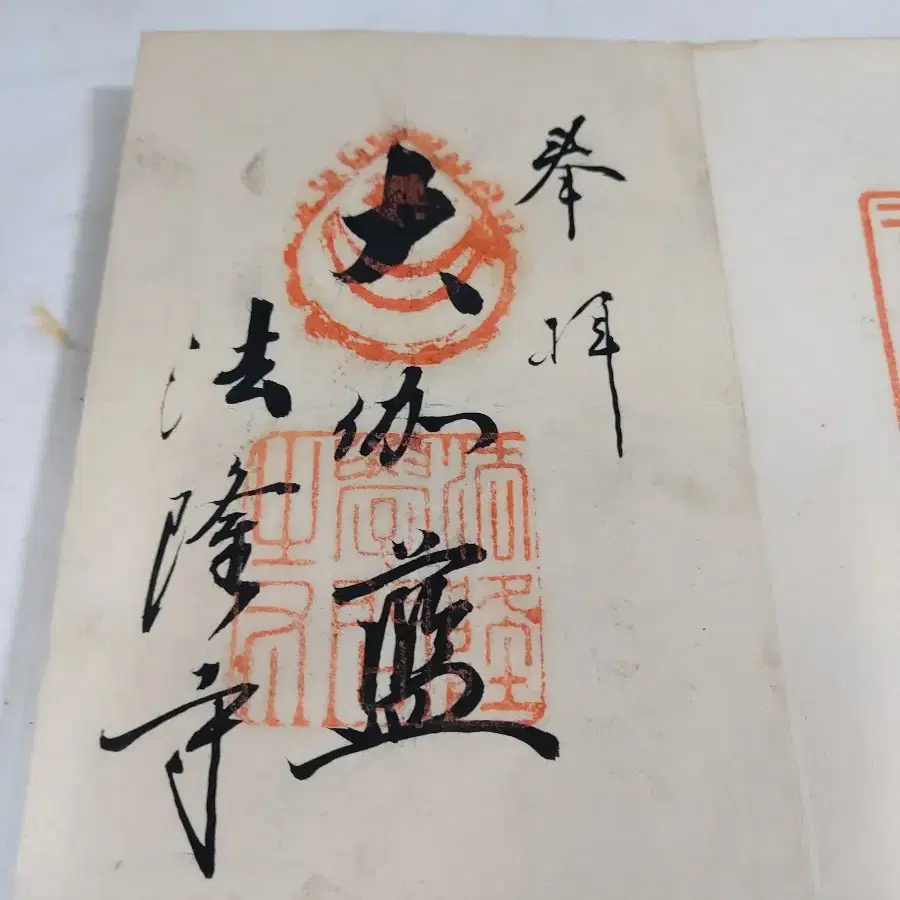 奉拝
大伽藍
法隆寺